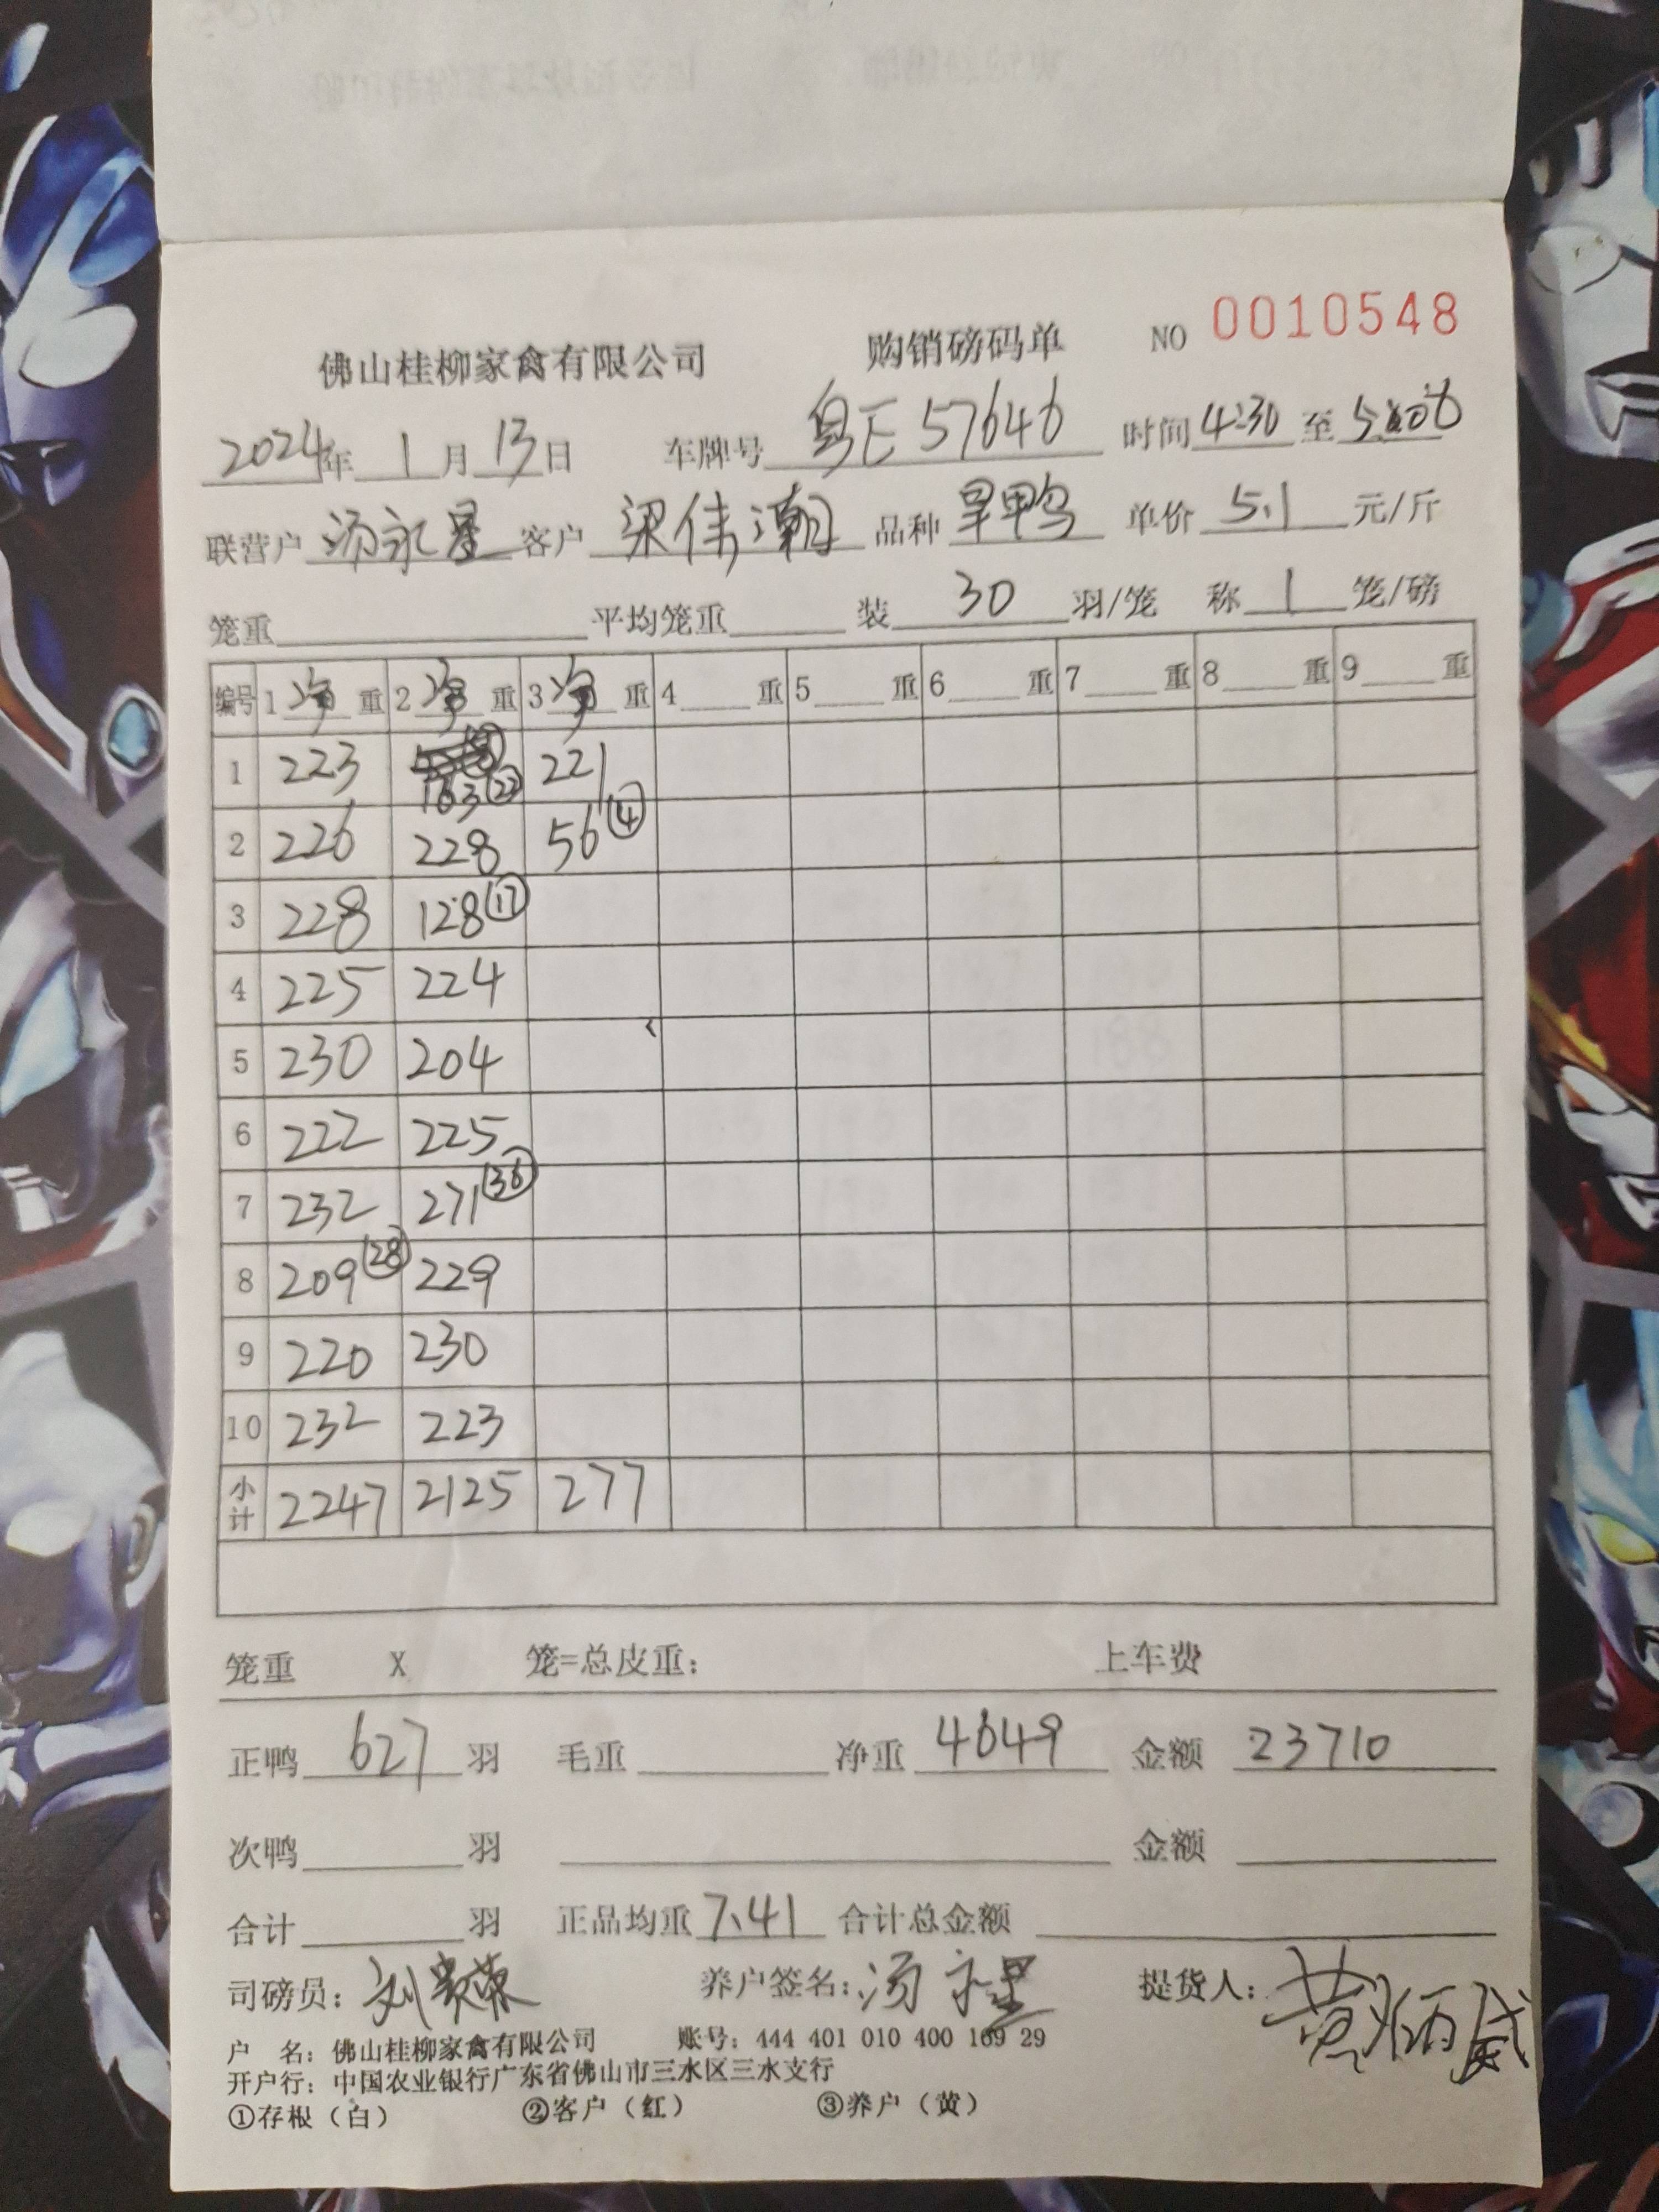 佛山桂柳家禽有限公司 购销磅码单 NO 0010548
2024年 1 月 13 日 车牌号 粤E 57646 时间 4:30 至
联营户 汤永星 客户 梁伟潮 品种 旱鸭 单价 5.1 元/斤
笼重 平均笼重 装 30 羽/笼 称 1 笼/磅
编号 1 净 重 2 净 重 3 净 重 4 重 5 重 6 重 7 重 8 重 9 重
1 223 163 (22) 221
2 226 228 56 (4)
3 228 128 (17)
4 225 224
5 230 204
6 222 225
7 232 271 (36)
8 209 (28) 229
9 220 230
10 232 223
小计 2247 2125 277
笼重 X 笼=总皮重： 上车费
正鸭 627 羽 毛重 净重 4649 金额 23710
次鸭 羽 金额
合计 羽 正品均重 7.41 合计总金额
司磅员： 养户签名：汤永星 提货人：黄炳威
户 名：佛山桂柳家禽有限公司 账号：444 401 010 400 169 29
开户行：中国农业银行广东省佛山市三水区三水支行
①存根（白） ②客户（红） ③养户（黄）